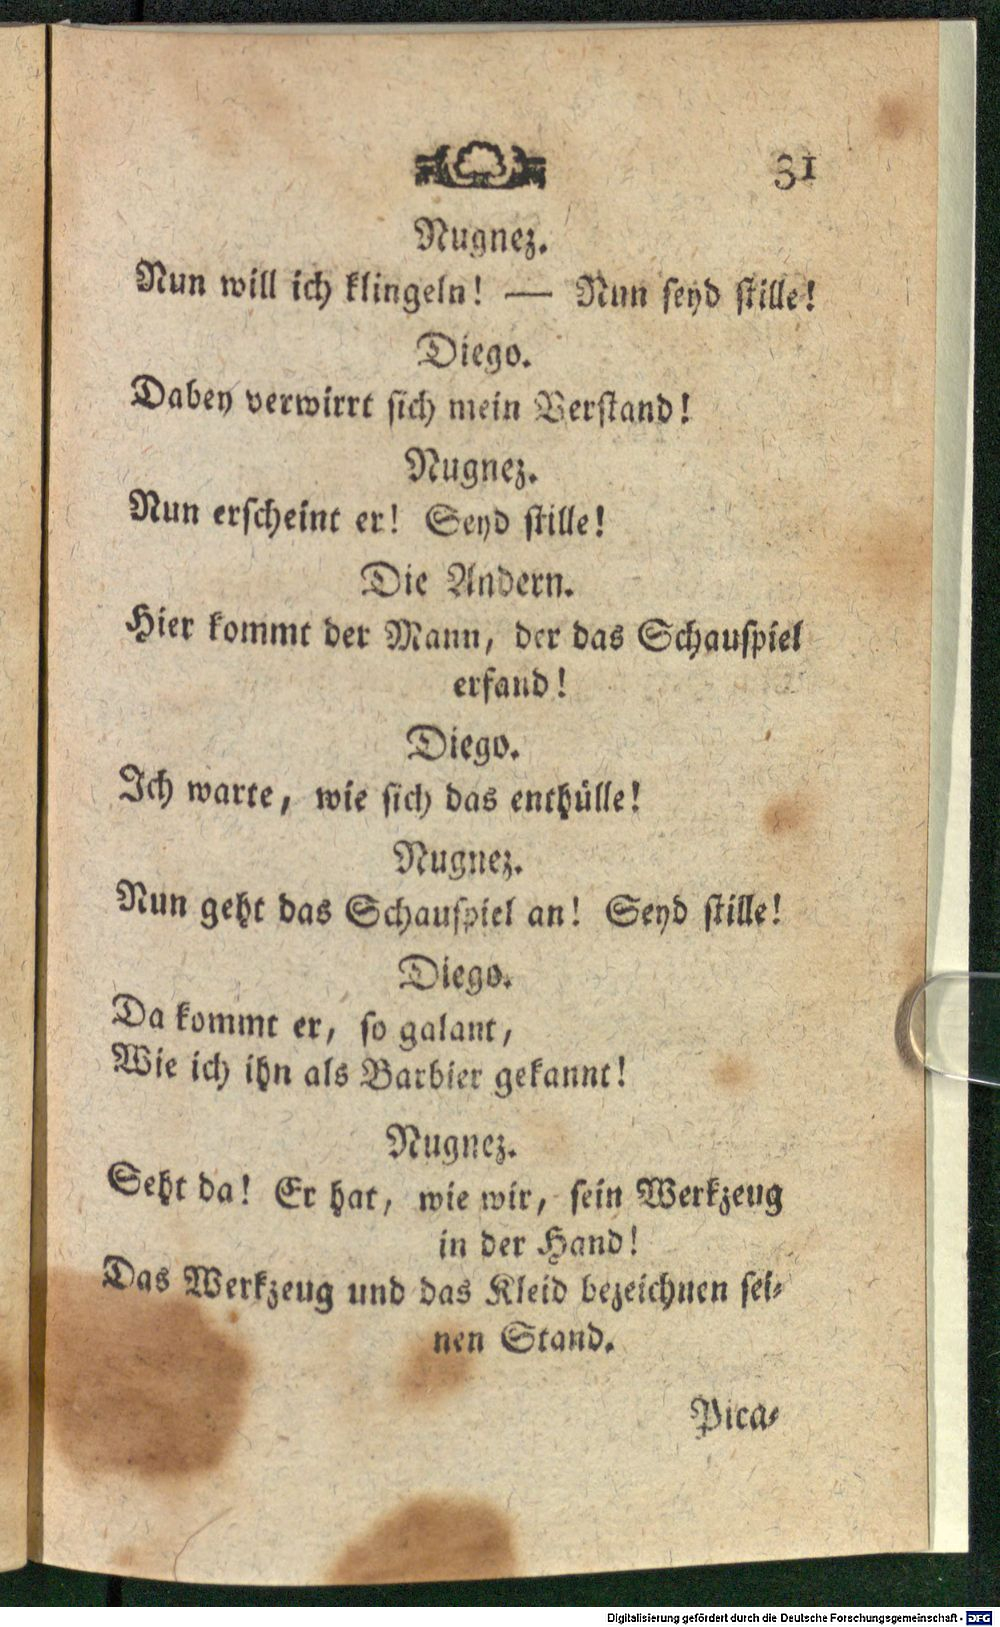 31
Nugnez.
Nun will ich klingeln! — Nun seyd stille!
Diego.
Dabey verwirrt sich mein Verstand!
Nugnez.
Nun erscheint er! Seyd stille!
Die Andern.
Hier kommt der Mann, der das Schauspiel
erfand!
Diego.
Ich warte, wie sich das enthülle!
Nugnez.
Nun geht das Schauspiel an! Seyd stille!
Diego.
Da kommt er, so galant,
Wie ich ihn als Barbier gekannt!
Nugnez.
Seht da! Er hat, wie wir, sein Werkzeug
in der Hand!
Das Werkzeug und das Kleid bezeichnen sei-
nen Stand.
Pica-
Digitalisierung gefördert durch die Deutsche Forschungsgemeinschaft - DFG